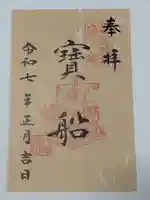 奉拝
寶船
令和七年正月吉日